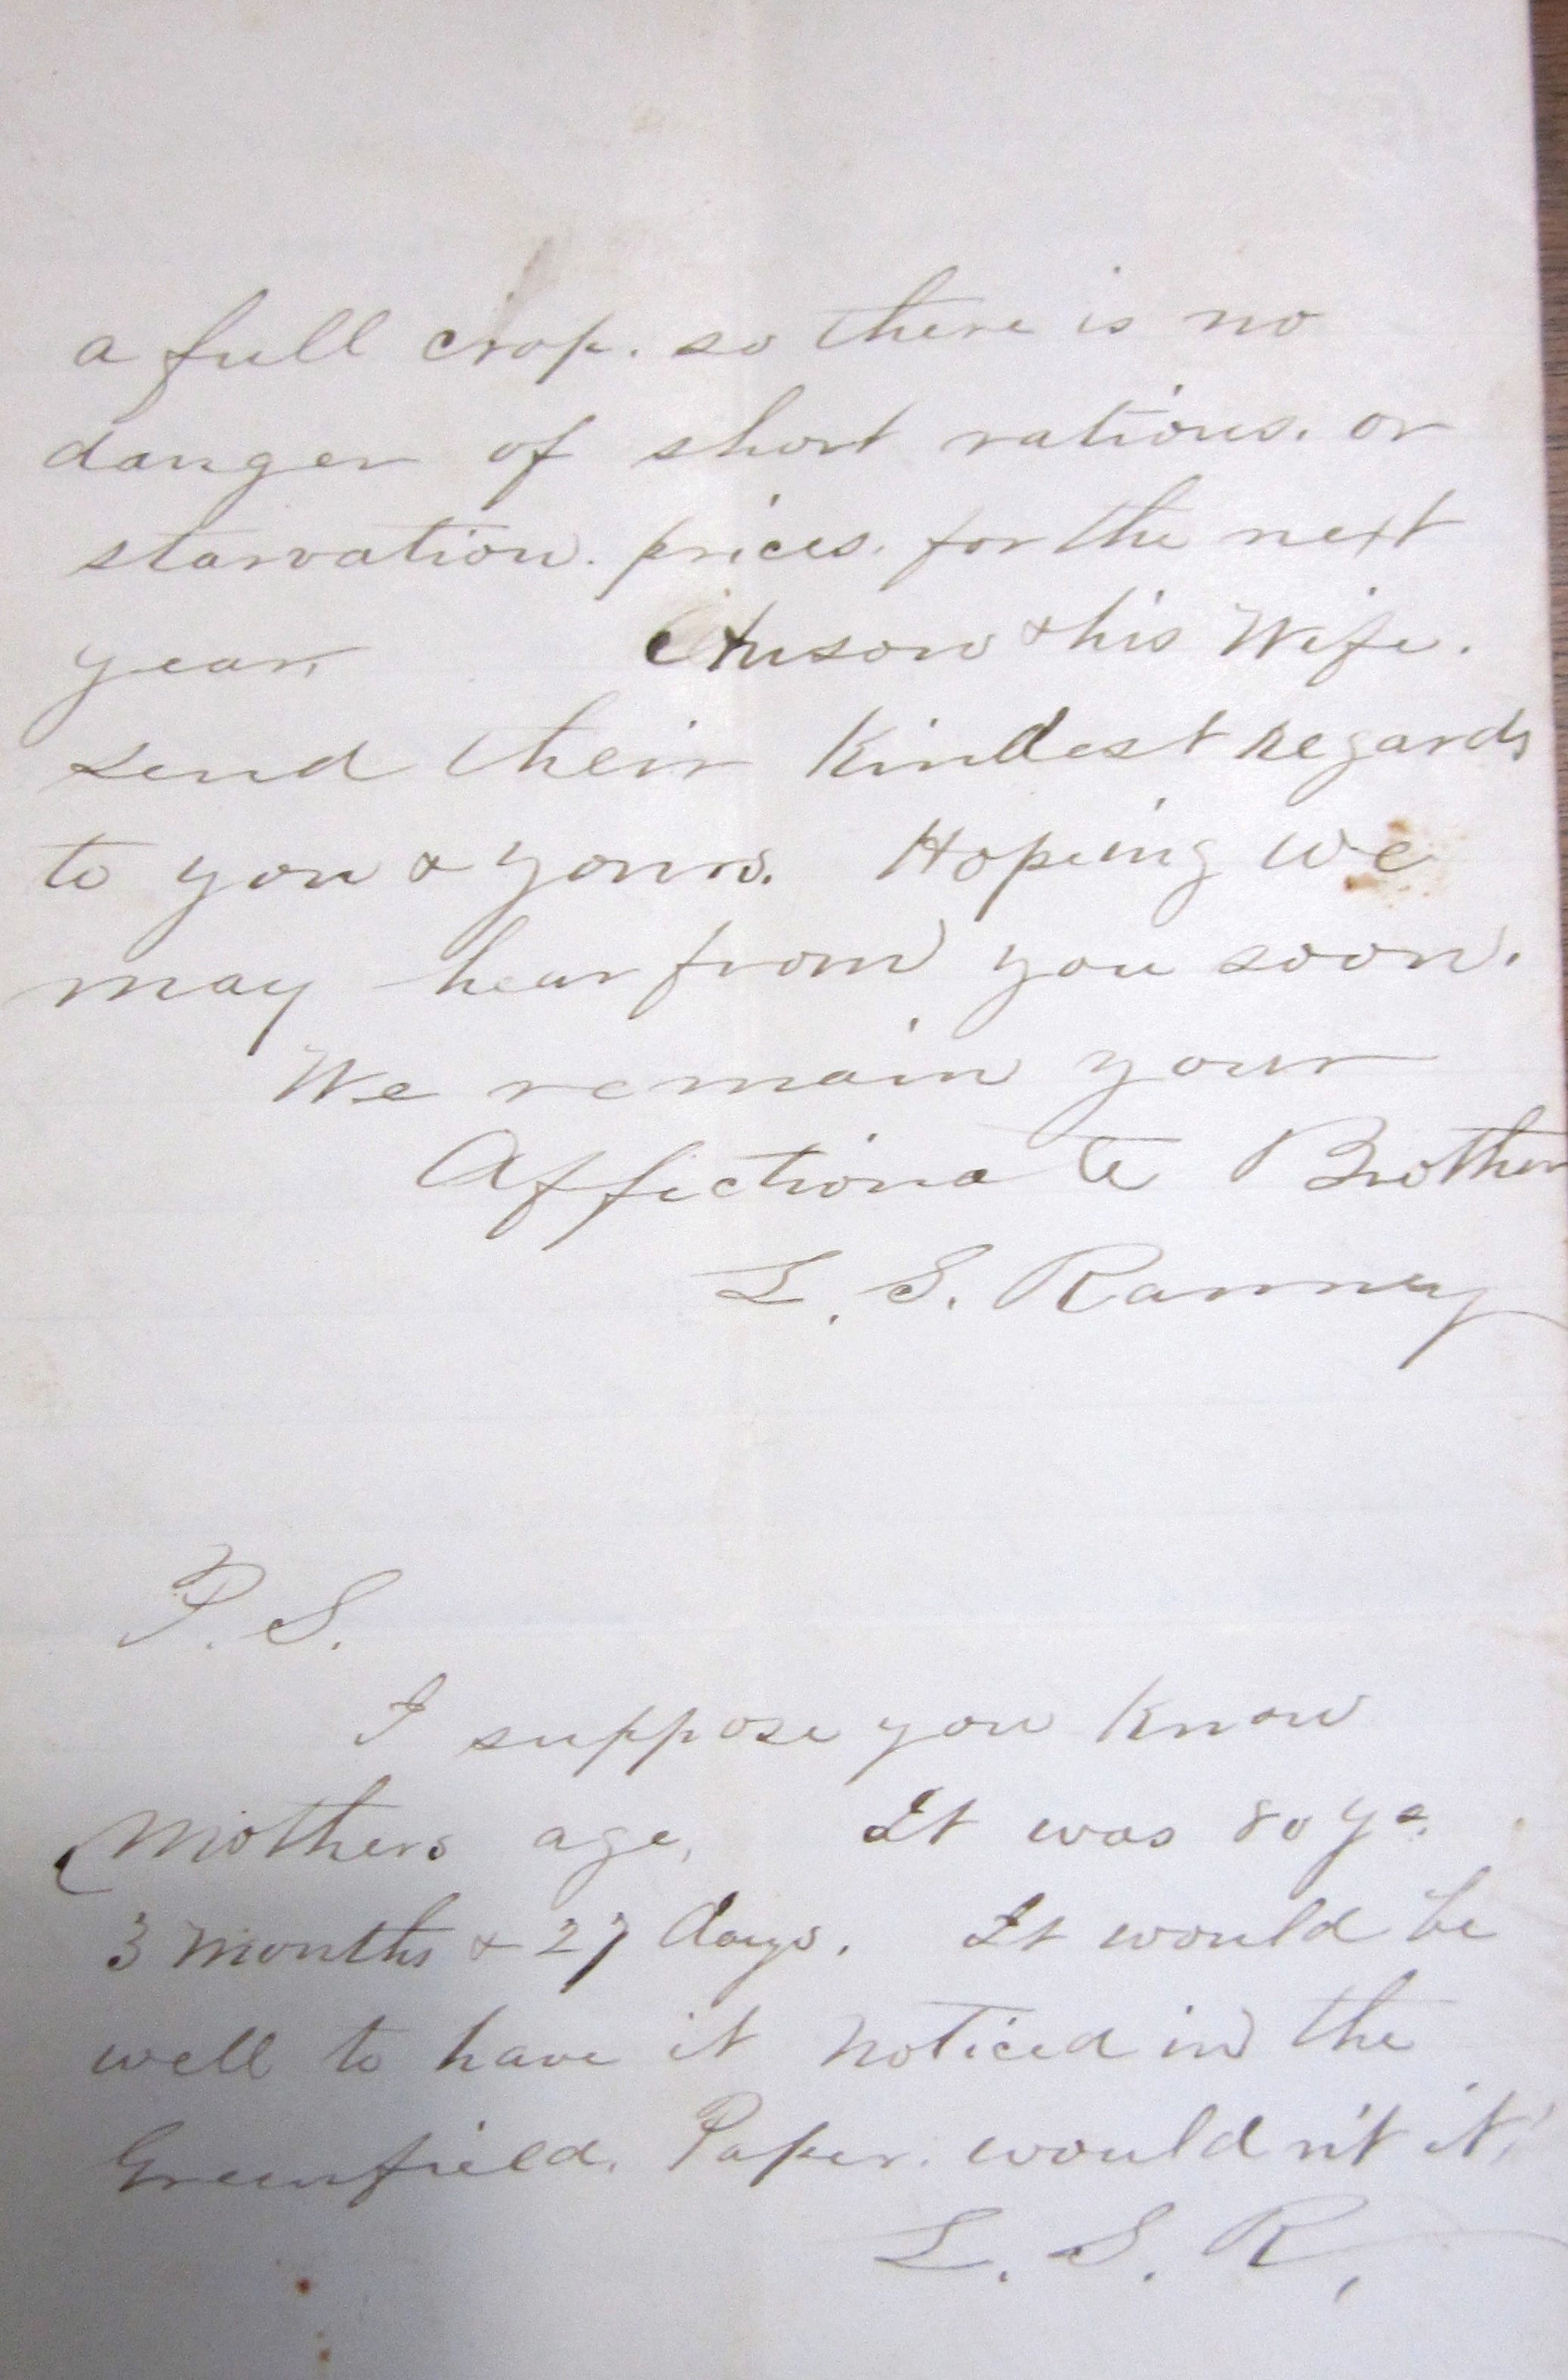 a full crop. so there is no
danger of short rations. or
starvation. prices. for the next
year. Anson & his Wife.
send their Kindest regards
to you & yours. Hoping we
may hear from you soon.
We remain your
Affectionate Brother
L. S. Ranney
P. S.
I suppose you Know
Mothers age, It was 80 ys.
3 Months & 27 days. It would be
well to have it Noticed in the
Greenfield. Paper. would n't it,
L. S. R,